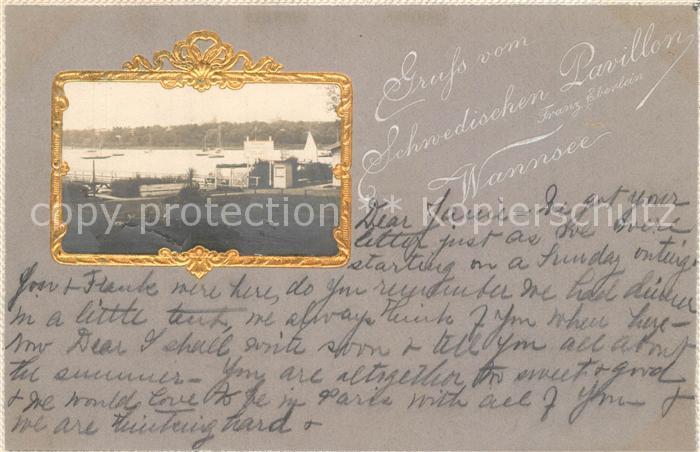 Gruß vom
Schwedischen Pavillon
Franz Eberlein
Wannsee
copy protection ☆ kopierschutz
Dear - I got your
letter just as we were
starting on a Sunday outing.
You & Frank were here, do you remember we had dinner
in a little tent, we always think of you when here -
Now Dear I shall write soon & tell you all about
the summer - You are altogether too sweet & good
& we would love to be in Paris with all of you &
we are thinking hard &